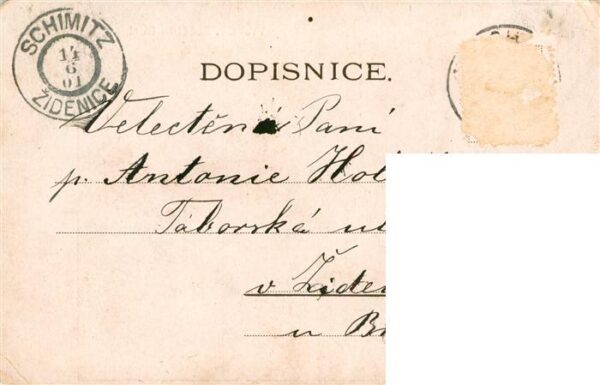 SCHIMITZ
14
6
01
ŽIDENICE
DOPISNICE.
Velectěná Paní
p. Antonie
Táborská
v
u